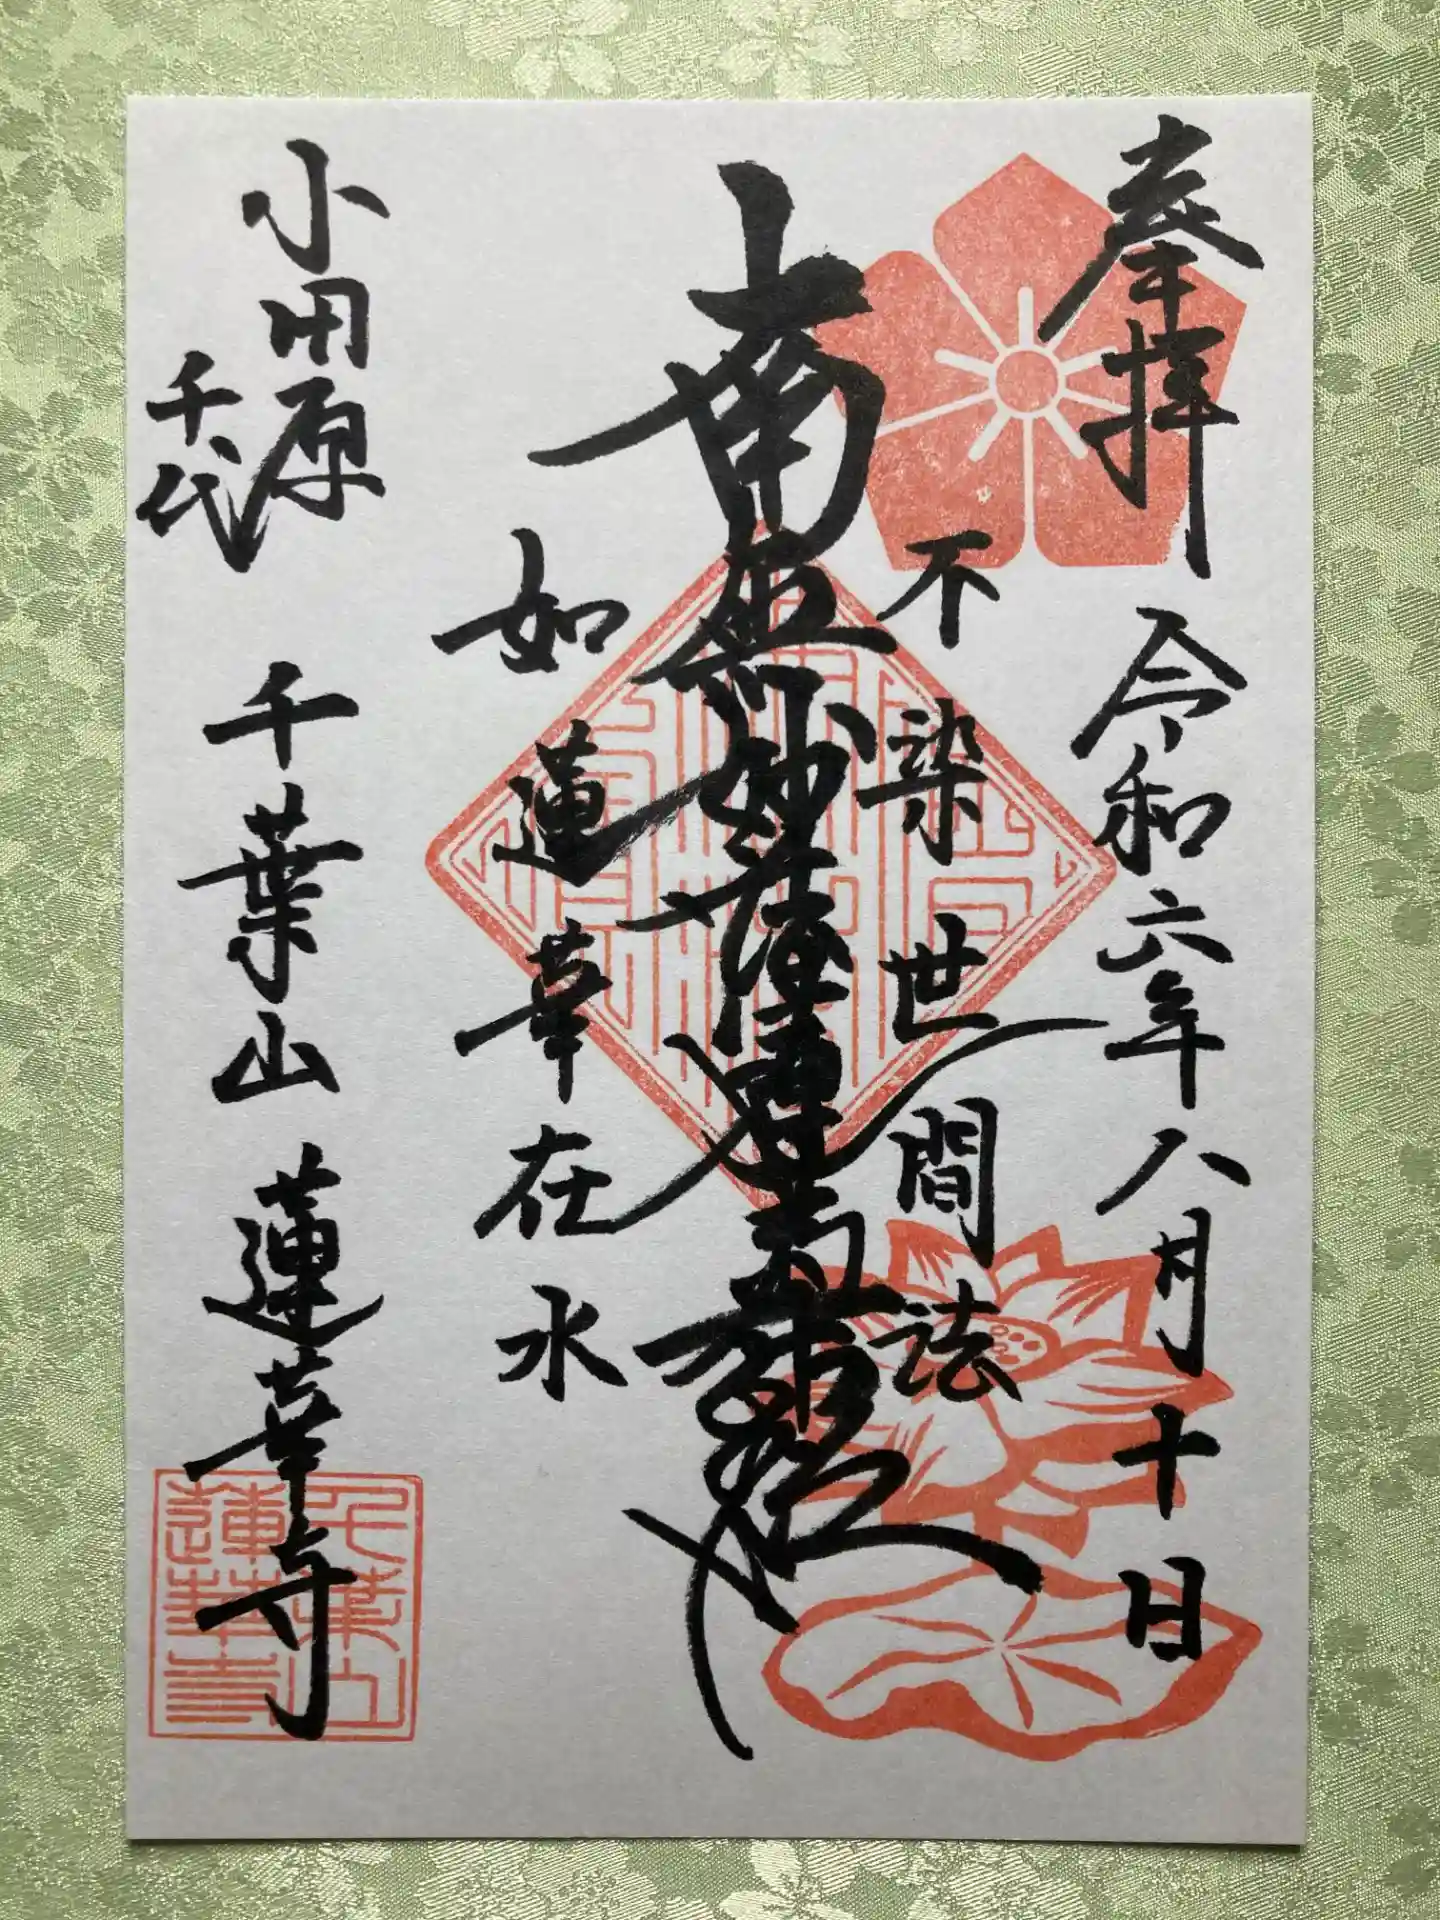 奉拝 令和六年八月十日
不染世間法
南無妙法蓮華經
如蓮華在水
小田原
千代
千葉山 蓮華寺
千葉山
蓮華寺